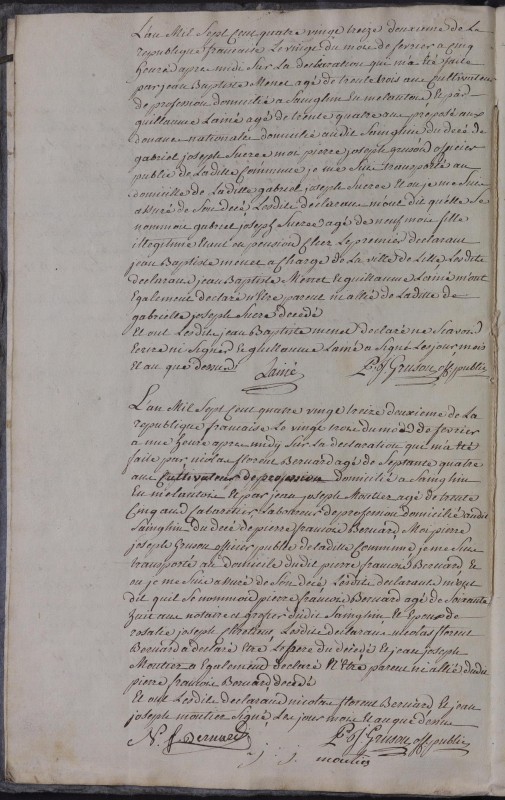 L'an Mil Sept Cent quatre vingt treize deuxieme de La
republique francaise Le vingt du mois de fevrier a cinq
heure apre midi Sur La declaration qui m'a été faite
par jean Baptiste Menet agé de trente trois ans Cultivateur
de profession domicilié a Sainghin En melantois Et par
guillaume Lainé agé de trente quatre ans preposé aux
douane nationale domicilié audit Sainghin du decé de
gabriel joseph Sucre moi pierre joseph gruson officier
public de Laditte Commune je me suis transporté au
domicille de Laditte gabriel joseph Sucre Et ou je me suis
assuré de Son decé Lesdits declarans m'ont dit quelle Se
nommoit gabriel joseph Sucre agé de neuf mois fille
illegitime Etant en pension Chez Le premier declarant
jean Baptiste menet a Charge de La ville de Lille Lesdits
declarans jean Baptiste Menet Et guillaume Lainé m'ont
Egalement declaré n'Etre parent ni allié de Laditte
gabrielle joseph Sucre decedé
Et ont Lesdits jean Baptiste menet declaré ne Scavoir
Ecrire ni Signer Et guillaume Lainé a Signé Les jour mois
Et an que dessus
Lainé P. J. Gruson off public
L'an Mil Sept Cent quatre vingt treize deuxieme de La
republique francaise Le vingt trois du mois de fevrier
a une heure apre midy Sur La declaration que m'a été
faite par nicolas florent Bernard agé de Septante quatre
ans Cultivateur de profession domicilié a Sainghin
En melantois Et par jean joseph Moutier agé de trente
Cinq ans Cabaretier Laboureur de profession domicilié audit
Sainghin du decé de pierre francois Bernard Moi pierre
joseph Gruson officier public de laditte Commune je me suis
transporté au domicile dudit pierre francois Bernard Et
ou je me suis assuré de Son decé Lesdits declarant m'ont
dit quil se nommoit pierre francois Bernard agé de Soixante
huit ans notaire et greffier dudit Sainghin Et Epoux de
rosalie joseph Lesdits declarans nicolas florent
Bernard a declaré Etre Le frere du decedé Et jean joseph
Moutier a Egalement declaré N'Etre parent ni allié dudit
pierre francois Bernard decedé
Et ont Lesdits declarans nicolas florent Bernard Et jean
joseph moutier Signé Les jour mois Et an que dessus
N. f. Bernard P. J. Gruson off public
j. j. moutier